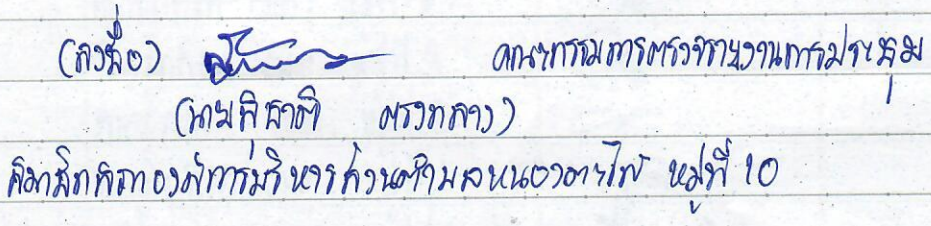 (ลงชื่อ) คณะกรรมการตรวจรายงานการประชุม
(นายสุชาติ ตรงกลาง)
สมาชิกสภาองค์การบริหารส่วนตำบลหนองตะไก้ หมู่ที่ 10